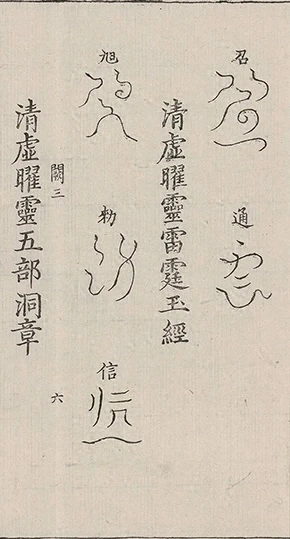 召
通
清虛曜靈雷霆玉經
旭
勑
信
闕三
六
清虛曜靈五部洞章